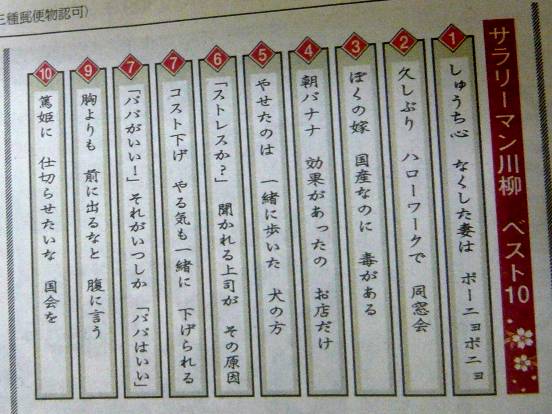 三種郵便物認可)
サラリーマン川柳 ベスト10
1 しゅうち心 なくした妻は ポーニョポニョ
2 久しぶり ハローワークで 同窓会
3 ぼくの嫁 国産なのに 毒がある
4 朝バナナ 効果があったの お店だけ
5 やせたのは 一緒に歩いた 犬の方
6 「ストレスか?」 聞かれる上司が その原因
7 コスト下げ やる気も一緒に 下げられる
7 「パパがいい!」それがいつしか 「パパはいい」
9 胸よりも 前に出るなと 腹に言う
10 篤姫に 仕切らせたいな 国会を